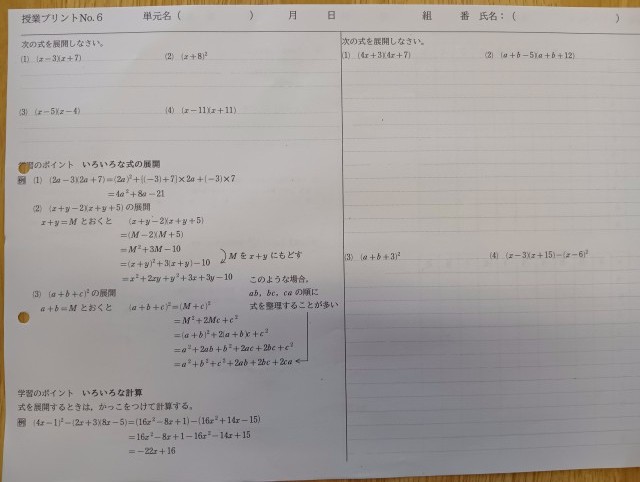 授業プリントNo.6　単元名（　　　　　）　月　　日　　　　組　　番　氏名：（　　　　　　　）
次の式を展開しなさい。
(1) (x－3)(x＋7)　(2) (x＋8)²
(3) (x－5)(x－4)　(4) (x－11)(x＋11)
学習のポイント　いろいろな式の展開
例 (1) (2a－3)(2a＋7)＝(2a)²＋{(－3)＋7}×2a＋(－3)×7
＝4a²＋8a－21
(2) (x＋y－2)(x＋y＋5) の展開
x＋y＝M とおくと　(x＋y－2)(x＋y＋5)
＝(M－2)(M＋5)
＝M²＋3M－10
M を x＋y にもどす
＝(x＋y)²＋3(x＋y)－10
＝x²＋2xy＋y²＋3x＋3y－10
(3) (a＋b＋c)² の展開
a＋b＝M とおくと　(a＋b＋c)²＝(M＋c)²
＝M²＋2Mc＋c²
＝(a＋b)²＋2(a＋b)c＋c²
＝a²＋2ab＋b²＋2ac＋2bc＋c²
＝a²＋b²＋c²＋2ab＋2bc＋2ca
このような場合，
ab，bc，ca の順に
式を整理することが多い
学習のポイント　いろいろな計算
式を展開するときは，かっこをつけて計算する。
例 (4x－1)²－(2x＋3)(8x－5)＝(16x²－8x＋1)－(16x²＋14x－15)
＝16x²－8x＋1－16x²－14x＋15
＝－22x＋16
次の式を展開しなさい。
(1) (4x＋3)(4x＋7)　(2) (a＋b－5)(a＋b＋12)
(3) (a＋b＋3)²　(4) (x－3)(x＋15)－(x－6)²